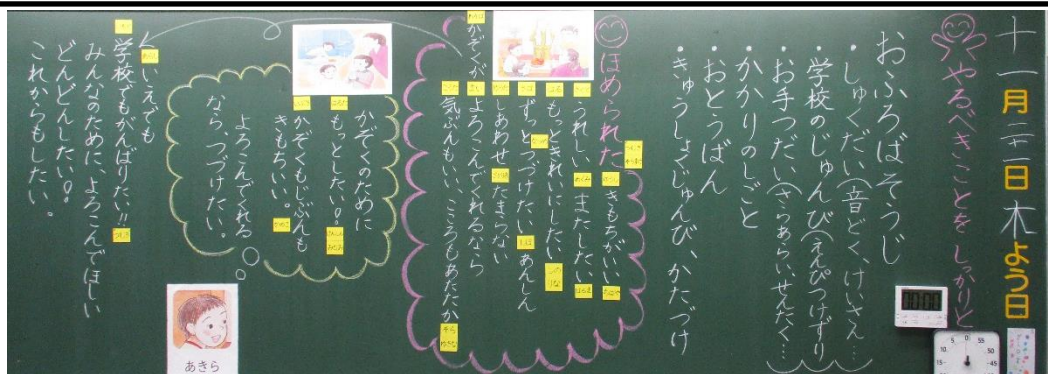 十一月二十二日木よう日
やるべきことを しっかりと
おふろばそうじ
・しゅくだい(音どく、けいさん…)
・学校のじゅんび(えんぴつけずり)
・お手つだい(さらあらい、せんたく…)
・かかりのしごと
・おとうばん
・きゅうしょくじゅんび、かたづけ
ほめられた
きもちがいい
うれしい またしたい
もっときれいにしたい
ずっとつづけたい あんしん
しあわせ たまらない
よろこんでくれるなら
気ぶんもいい、こころもあたたか
かぞくが
かぞくのために
もっとしたい!
かぞくもじぶんも
きもちいい。
よろこんでくれる
なら、つづけたい。
あきら
いえでも
学校でもがんばりたい!!
みんなのために、よろこんでほしい
どんどんしたい!
これからもしたい。
00:00
0
5
10
15
55
50
45